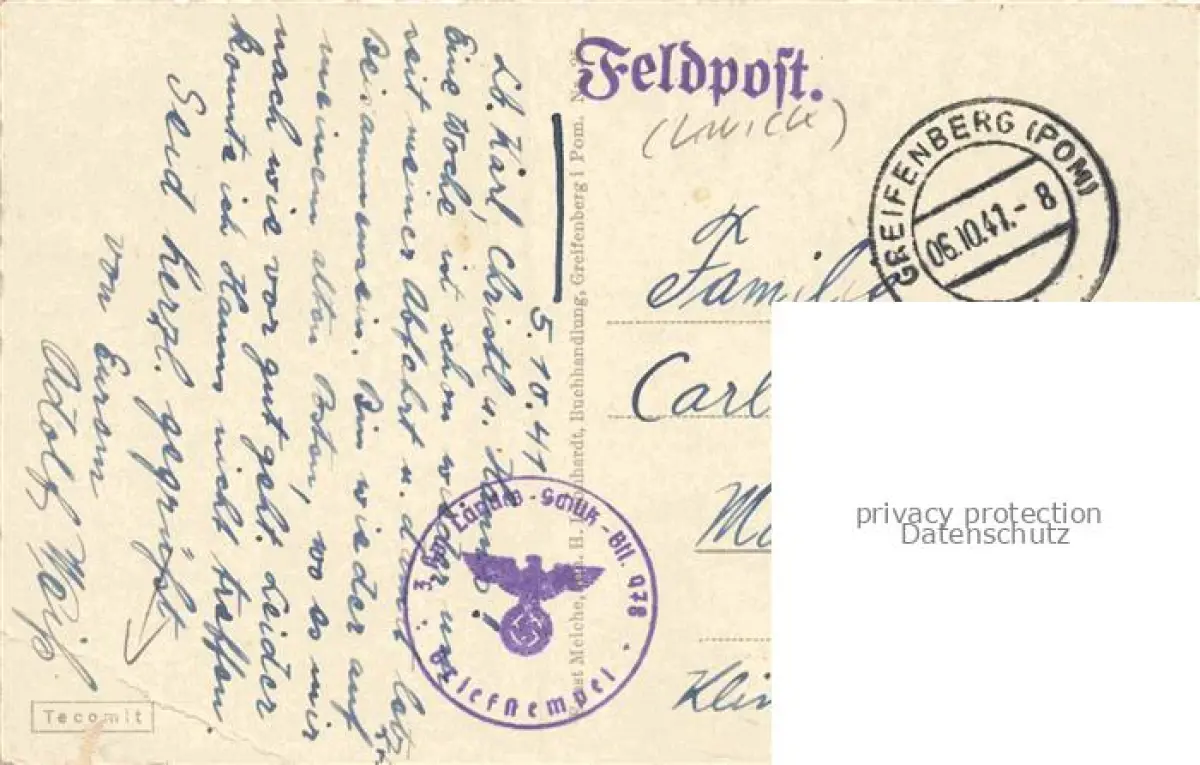 Feldpost.
(
GREIFENBERG (POM)
06.10.41.-8
Familie
Carl
Kli
5.10.41
Lb. Karl, Christl u. Hanns!
Eine Woche ist schon wieder um
seit meiner Abfahrt u. dem letz
Beisammensein. Bin wieder auf
meinem alten Posten, wo es mir
nach wie vor gut geht. Leider
konnte ich Hanns nicht treffen.
Seid herzl. gegrüßt
von Eurem
Adolf Weiß.
3 Landes-Schütz-Btl. 978
Briefstempel
Buchhandlung, Greifenberg i. Pom.
Tecomit
privacy protection
Datenschutz